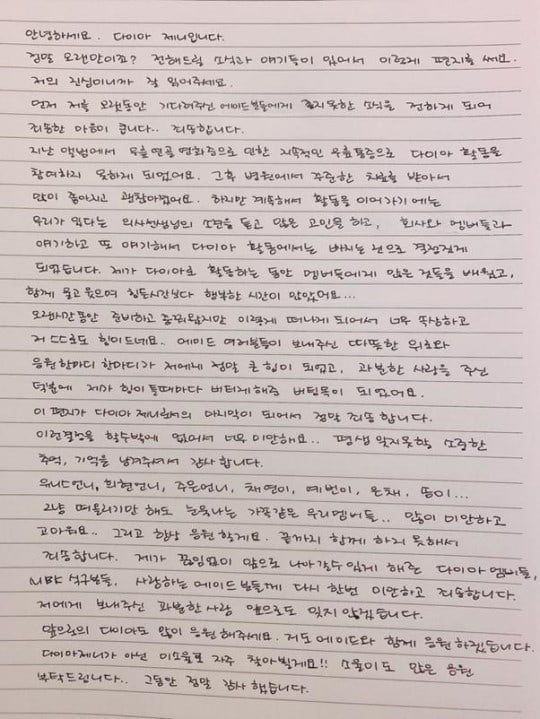 안녕하세요. 다이아 제니입니다.
정말 오랜만이죠? 전해드릴 소식과 얘기들이 있어서 이렇게 편지를 써요.
저의 진심이니까 잘 읽어주세요.
먼저 저를 오랫동안 기다려주신 에이드분들에게 좋지못한 소식을 전하게 되어
죄송한 마음이 큽니다.. 죄송합니다.
지난 앨범에서 무릎연골 연화증으로 인한 지속적인 무릎통증으로 다이아 활동을
참여하지 못하게 되었어요. 그후 병원에서 꾸준한 치료를 받아서
많이 좋아지고 괜찮아졌어요. 하지만 계속해서 활동을 이어가기에는
무리가 있다는 의사선생님의 소견을 듣고 많은 고민을 하고, 회사와 멤버들과
얘기하고 또 얘기해서 다이아 활동에서는 빠지는 것으로 결정짓게
되었습니다. 제가 다이아로 활동하는 동안 멤버들에게 많은 것들을 배웠고,
함께 울고 웃으며 힘든시간보다 행복한 시간이 많았어요...
오랜시간동안 준비하고 꿈꿔왔지만 이렇게 떠나게 되어서 너무 속상하고
저 스스로도 힘이드네요. 에이드 여러분들이 보내주신 따뜻한 위로와
응원 한마디 한마디가 저에게 정말 큰 힘이 되었고, 과분한 사랑을 주신
덕분에 제가 힘이 들때마다 버티게해준 버팀목이 되었어요.
이 편지가 다이아 제니로서의 마지막이 되어서 정말 죄송합니다.
이런결정을 할수밖에 없어서 너무 미안해요.. 평생 잊지못할 소중한
추억, 기억을 남겨주셔서 감사합니다.
유니스언니, 희현언니, 주은언니, 채연이, 예빈이, 은채, 솜이...
그냥 떠올리기만 해도 눈물나는 가족같은 우리멤버들.. 많이 미안하고
고마워요.. 그리고 항상 응원 할게요. 끝까지 함께 하지 못해서
죄송합니다. 제가 끊임없이 앞으로 나아갈수 있게 해준 다이아 멤버들,
MBK 식구분들, 사랑하는 에이드분들께 다시 한번 미안하고 죄송합니다.
저에게 보내주신 과분한사랑 앞으로도 잊지 않겠습니다.
앞으로의 다이아도 많이 응원 해주세요. 저도 에이드와 함께 응원하겠습니다.
다이아제니가 아닌 이소율로 자주 찾아뵐게요!! 소율이도 많은 응원
부탁드립니다.. 그동안 정말 감사 했습니다.